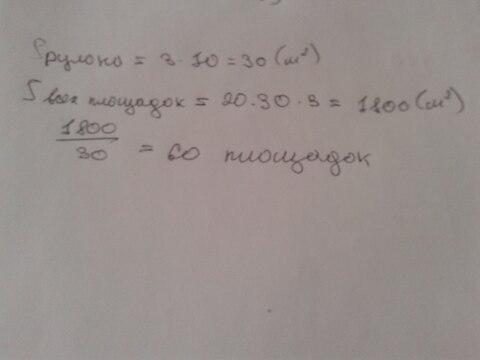 S рулона = 3 · 10 = 30 (м²)
S всех площадок = 20 · 30 · 3 = 1800 (м²)
1800
30
= 60 площадок